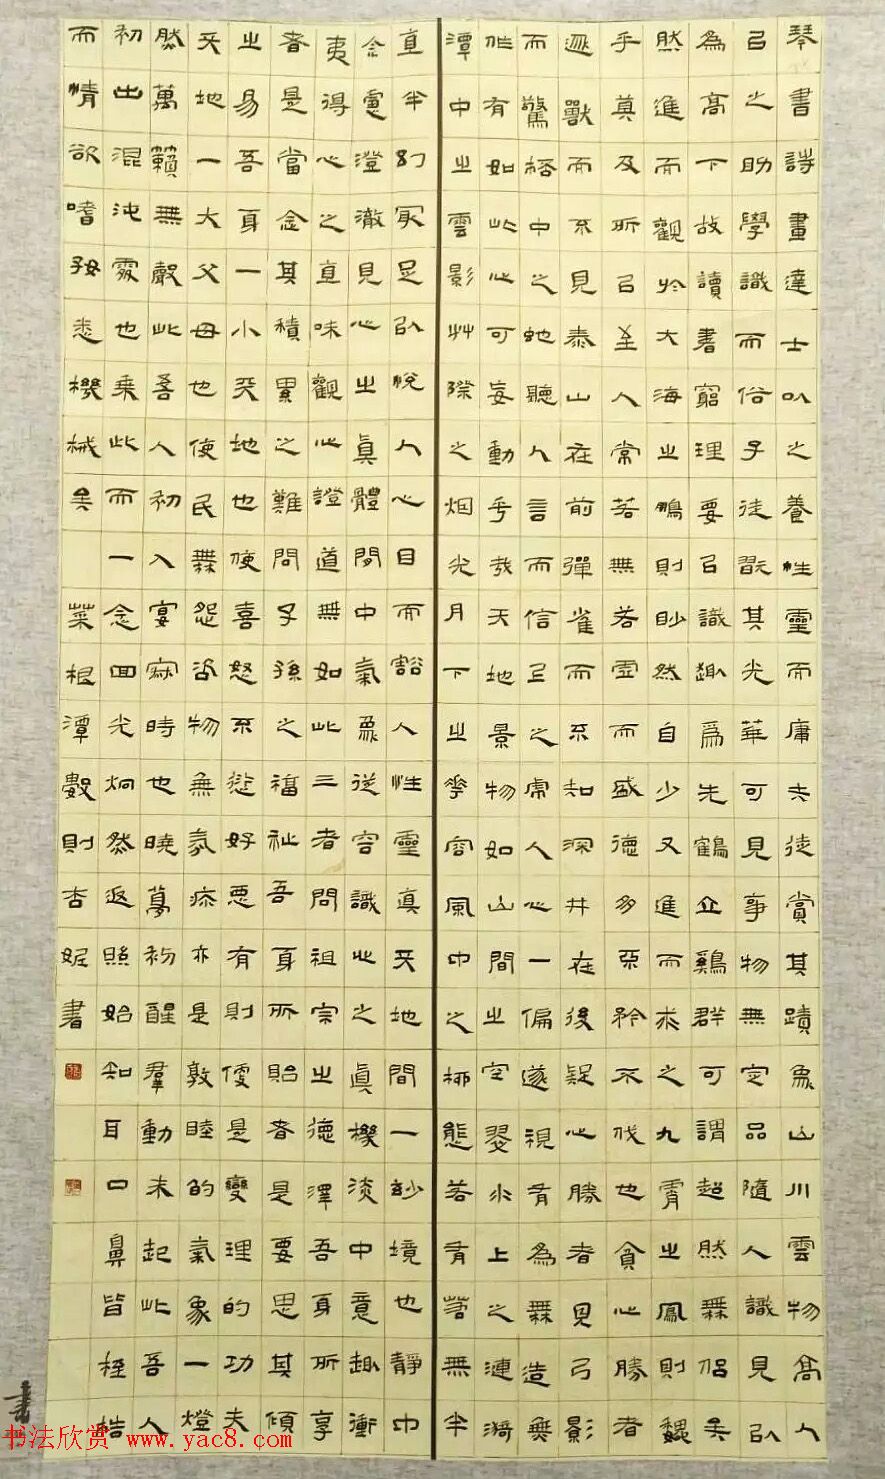 琴書詩畫達士以之養性靈而庸夫徒賞其蹟象山川雲物高人
以之助學識而俗子徒翫其光華可見事物無定品隨人識見以
為高下故讀書窮理要以識趣為先鶴立雞群可謂超然無侶矣
然進而觀於大海之鵬則眇然自少又進而求之九霄之鳳則巍
乎莫及所以至人常若無若虛而盛德多不矜不伐也貪心勝者
逐獸而不見泰山在前彈雀而不知深井在後疑心勝者見弓影
而驚桮中之蛇聽人言而信市之虎人心一偏遂視有為無造無
作有如此心可妄動乎哉天地景物如山間之空翠水上之漣漪
潭中之雲影艸際之烟光月下之花容風中之柳態若有若無半
真半幻最足以悅人心目而豁人性靈真天地間一妙境也靜中
念慮澄澈見心之真體閒中氣象從容識心之真機淡中意趣衝
夷得心之真味觀心證道無如此三者問祖宗之德澤吾身所享
者是當念其積累之難問子孫之福祉吾身所貽者是要思其傾
之易吾身一小天地也使喜怒不愆好惡有則便是變理的功夫
天地一大父母也使民無怨咨物無氛疹亦是敦睦的氣象一燈
然萬籟無聲此吾人初入宴寂時也曉夢初醒羣動未起此吾人
初出混沌處也乘此而一念回光炯然返照始知耳口鼻皆桎梏
而情欲嗜好悉機械矣 菜根潭數則杏妮書
书法欣赏 www.yac8.com